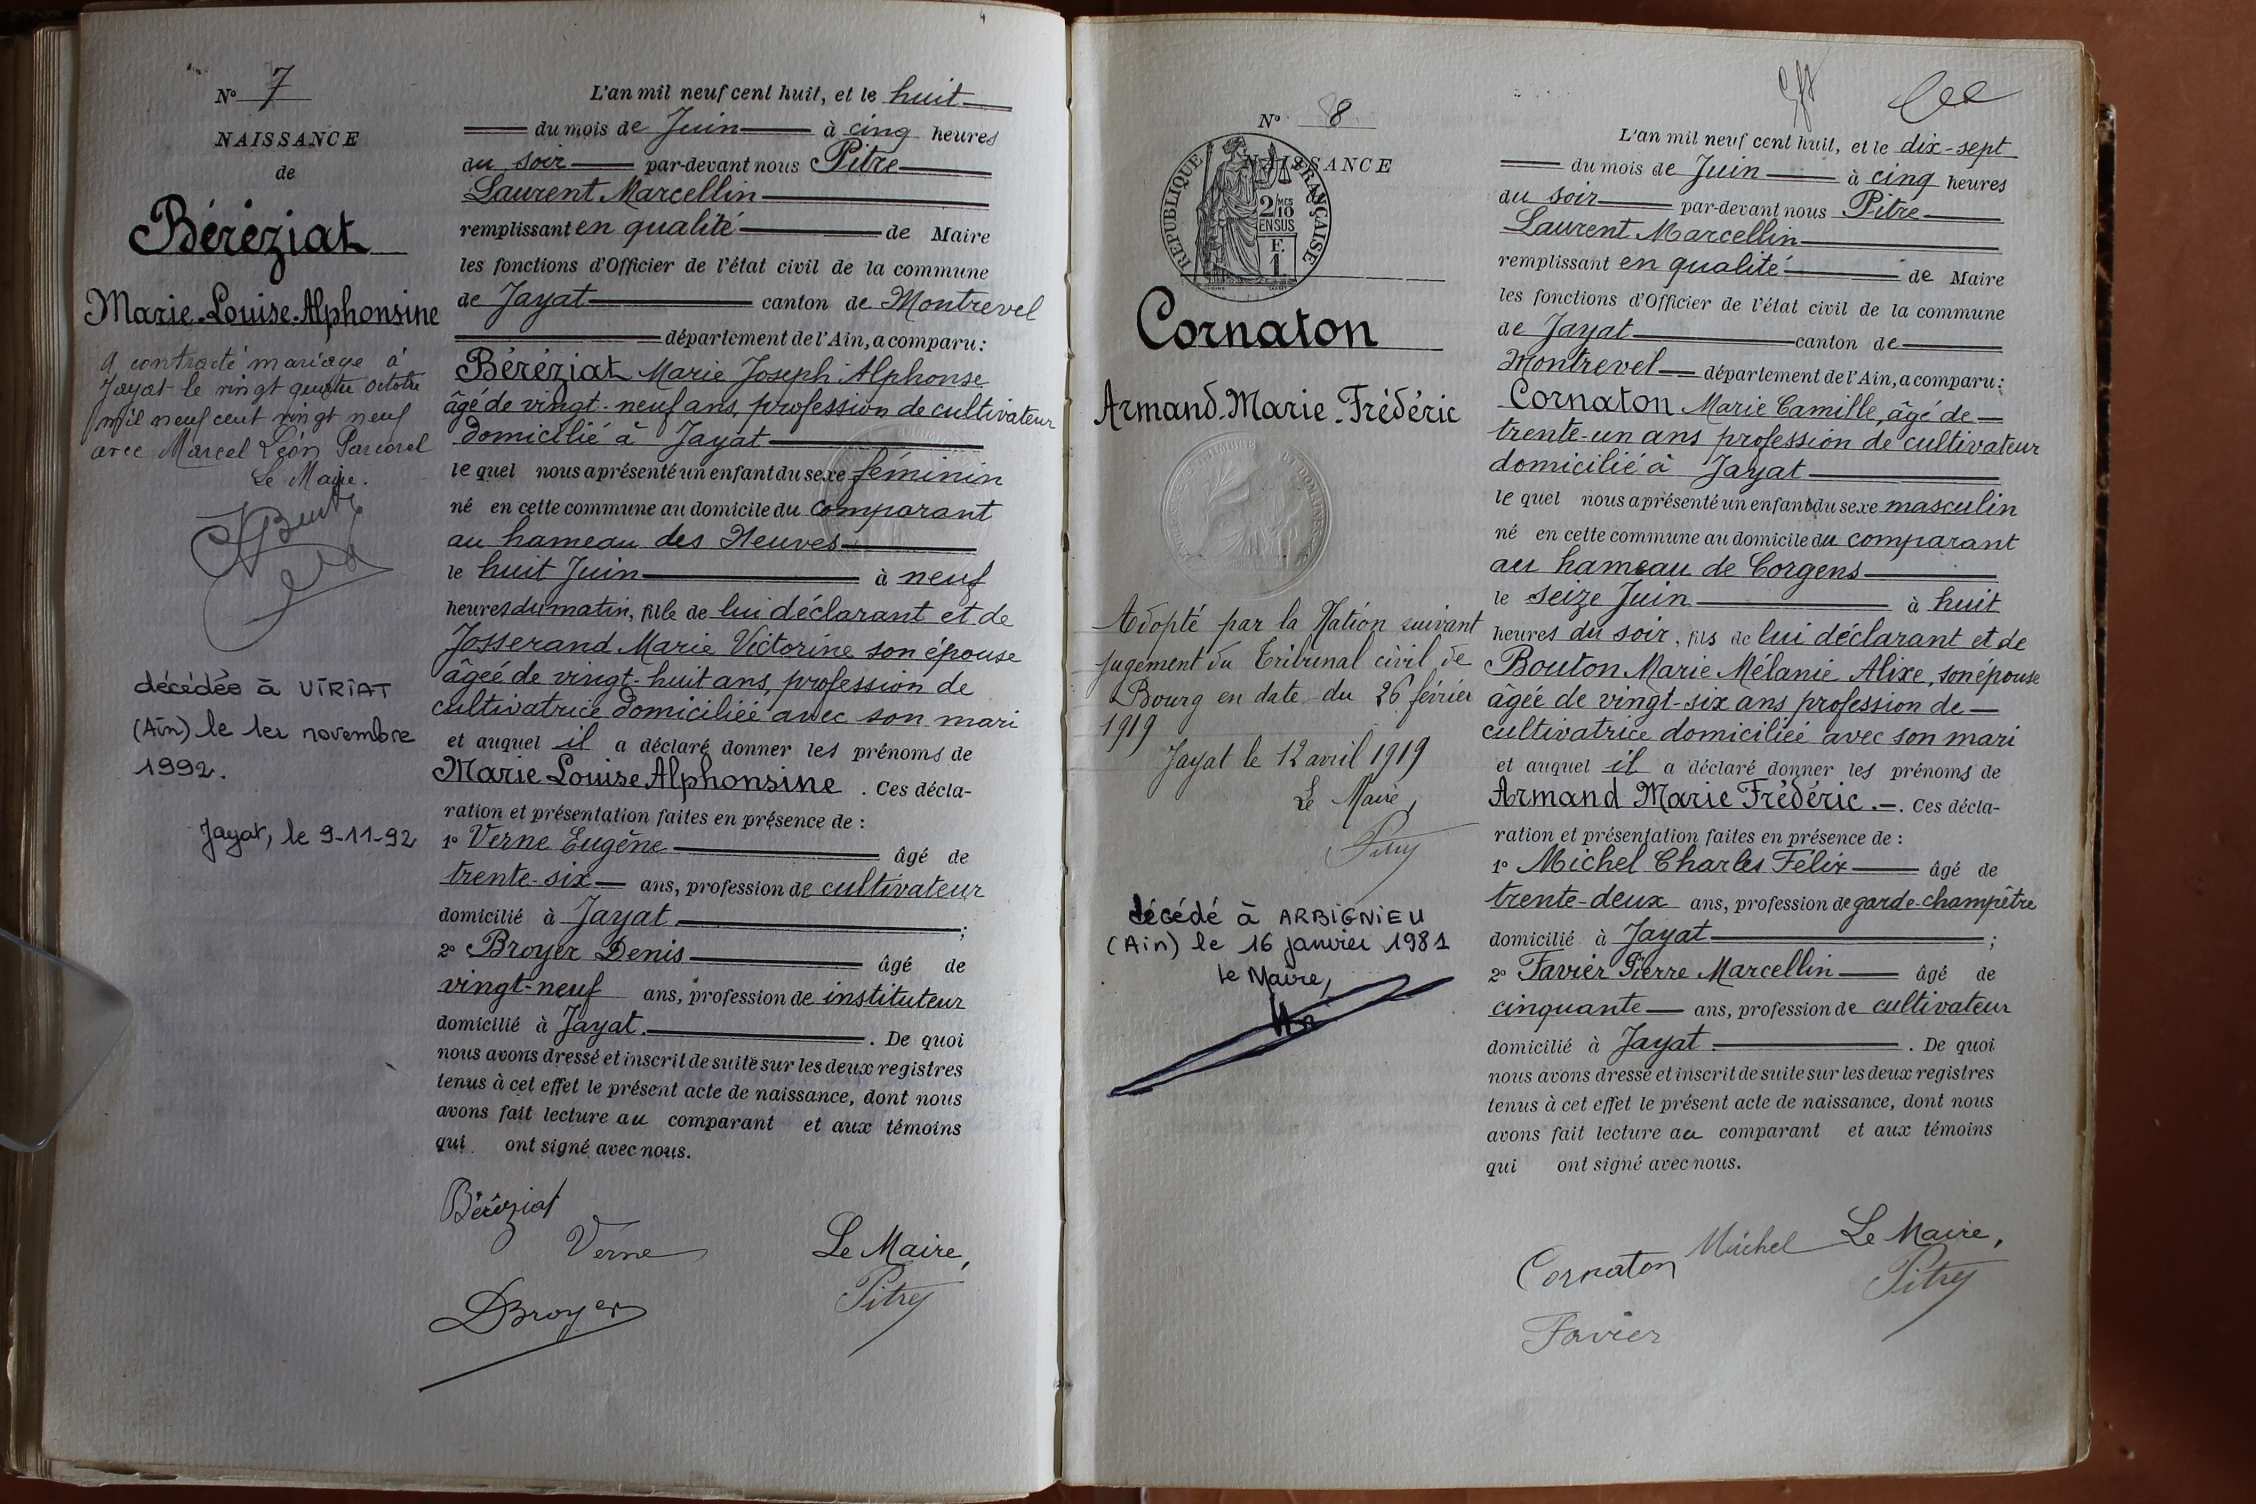 N° 7
NAISSANCE
de
Béréziat
Marie-Louise-Alphonsine
A contracté mariage à
Jayat le vingt quatre octobre
mil neuf cent vingt neuf
avec Marcel Léon
Le Maire.
décédée à VIRIAT
(Ain) le 1er novembre
1992.
Jayat, le 9-11-92
L'an mil neuf cent huit, et le huit
du mois de Juin à cinq heures
du soir par-devant nous Pitre
Laurent Marcellin
remplissant en qualité de Maire
les fonctions d'Officier de l'état civil de la commune
de Jayat canton de Montrevel
département de l'Ain, a comparu :
Béréziat Marie Joseph Alphonse
âgé de vingt-neuf ans, profession de cultivateur
domicilié à Jayat
le quel nous a présenté un enfant du sexe féminin
né en cette commune au domicile du comparant
au hameau des Heuves
le huit Juin à neuf
heures du matin, fille de lui déclarant et de
Josserand Marie Victorine son épouse
âgée de vingt-huit ans, profession de
cultivatrice domiciliée avec son mari
et auquel il a déclaré donner les prénoms de
Marie Louise Alphonsine . Ces décla-
ration et présentation faites en présence de :
1° Verne Eugène âgé de
trente-six ans, profession de cultivateur
domicilié à Jayat ;
2° Broyer Denis âgé de
vingt-neuf ans, profession de instituteur
domicilié à Jayat. . De quoi
nous avons dressé et inscrit de suite sur les deux registres
tenus à cet effet le présent acte de naissance, dont nous
avons fait lecture au comparant et aux témoins
qui ont signé avec nous.
Béréziat
Verne
Le Maire,
Pitre
DBroyer
N° 8
NAISSANCE
RÉPUBLIQUE FRANÇAISE
2/10 MES
EN SUS
F.
1
Cornaton
Armand-Marie-Frédéric
Adopté par la Nation suivant
jugement du Tribunal civil de
Bourg en date du 26 février
1919
Jayat le 12 avril 1919
Le Maire
Pitre
décédé à ARBIGNIEU
(Ain) le 16 janvier 1981
le Maire,
L'an mil neuf cent huit, et le dix-sept
du mois de Juin à cinq heures
du soir par-devant nous Pitre
Laurent Marcellin
remplissant en qualité de Maire
les fonctions d'Officier de l'état civil de la commune
de Jayat canton de
Montrevel département de l'Ain, a comparu :
Cornaton Marie Camille, âgé de
trente-un ans profession de cultivateur
domicilié à Jayat
le quel nous a présenté un enfant du sexe masculin
né en cette commune au domicile du comparant
au hameau de Corgens
le seize Juin à huit
heures du soir, fils de lui déclarant et de
Bouton Marie Mélanie Alixe, son épouse
âgée de vingt-six ans profession de
cultivatrice domiciliée avec son mari
et auquel il a déclaré donner les prénoms de
Armand Marie Frédéric. . Ces décla-
ration et présentation faites en présence de :
1° Michel Charles Félix âgé de
trente-deux ans, profession de garde-champêtre
domicilié à Jayat ;
2° Favier Pierre Marcellin âgé de
cinquante ans, profession de cultivateur
domicilié à Jayat . De quoi
nous avons dressé et inscrit de suite sur les deux registres
tenus à cet effet le présent acte de naissance, dont nous
avons fait lecture au comparant et aux témoins
qui ont signé avec nous.
Cornaton
Michel
Le Maire,
Pitre
Favier